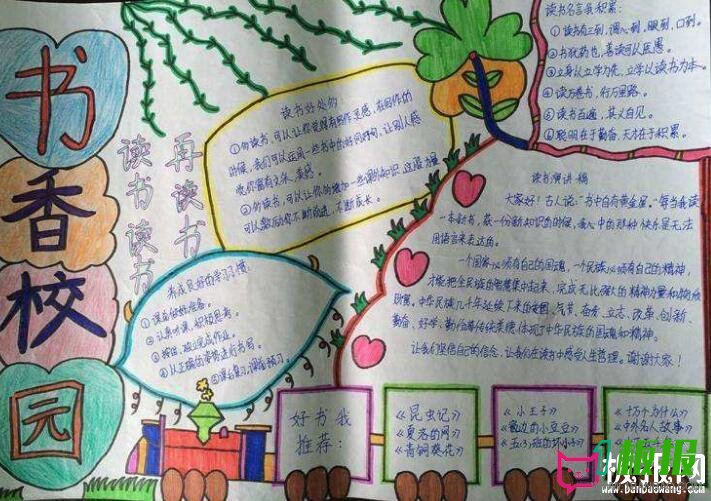 书
香
校
园
读书读书
再读书
读书好处多:
①勿读书,可以让你觉得有写作灵感,在写作的
时候,我们可以运用一些书中的好词好句,让别人感
觉你富有文采,美感。
②勿读书,可以让你的增加一些课外知识
可以激励你不断前进,不断成长。
读书名言我积累:
①读书有三到,谓心到,眼到,口到。
②书犹药也,善读可以医愚。
③立身以立学为先,立学以读书为本。
④读万卷书,行万里路。
⑤读书百遍,其义自见。
⑥聪明在于勤奋,天才在于积累。
读书演讲稿
大家好!古人说:“书中自有黄金屋。”每当喜读
一本新书,获一份新知识的时候,我心中的那种快乐是无法
用语言来表达的。
一个国家必须有自己的国魂,一个民族必须有自己的精神,
才能把全民族的智慧集中起来,完成无比强大的精神力量和物质
财富。中华民族几千年延续下来的爱国、气节、奋发、立志、改革、创新、
勤奋、好学、勤俭等传统美德,体现了中华民族的国魂和精神。
让我们坚信自己的信念,让我们在读书中感受人生哲理。谢谢大家!
养成良好的学习习惯:
①课前做好准备。
②认真听课,积极思考。
③按时,独立完成作业。
④以正确的姿势进行书写。
⑤课后复习,课前预习。
好书我
推荐:
《昆虫记》
《夏洛的网》
《青铜葵花》
《小王子》
《窗边的小豆豆》
《五(3)班的坏小子》
《十万个为什么》
《中外名人故事》
www.banbaowang.com